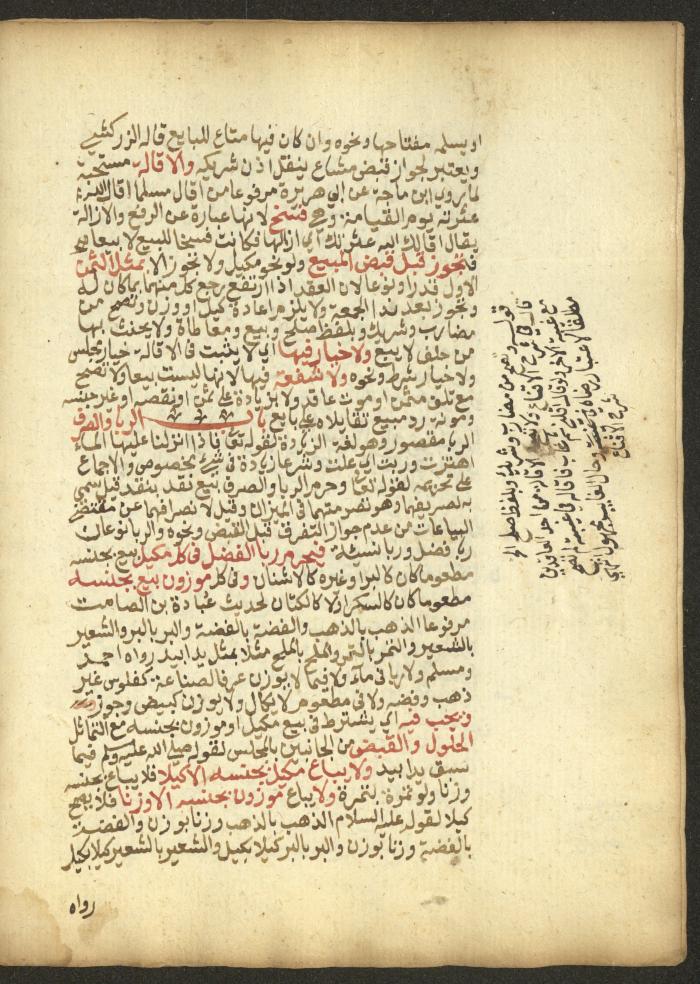 او يسلمه مفتاحها ونحوه وان كان فيها متاع للبايع قاله الزركشي
ويعتبر لجواز قبض مشاع ينقل اذن شريكه والاقالة مستحبة
لما روى ابن ماجة عن ابي هريرة مرفوعا من اقال مسلما اقال الله
عثرته يوم القيامة وهي فسخ لانها عبارة عن الرفع والازالة
يقال اقالك الله عثرتك اي ازالها فكانت فسخا للبيع لا بيعا
فتجوز قبل قبض المبيع ولو نحو مكيل ولا تجوز الا بمثل الثمن
الاول قدرا ونوعا لان العقد اذا ارتفع رجع كل منهما بما كان له
وتجوز بعد ندا الجمعة ولا يلزم اعادة كيل او وزن وتصح من
مضارب وشريك وبلفظ صلح وبيع ومعاطاة ولا يحنث بها
من حلف لا يبيع ولا خيار فيها اي لا يثبت في الاقالة خيار مجلس
ولا خيار شرط ونحوه ولا شفعة فيها لانها ليست بيعا ولا تصح
مع تلف مثمن او موت عاقد ولا بزيادة على ثمن او نقصه او غير جنسه
ومونة رد مبيع تقايلاه على بايع باب الربا والصرف
الربا مقصور وهو لغة الزيادة لقوله تعا فاذا انزلنا عليها الماء
اهتزت وربت اي علت وشرعا زيادة في شيء مخصوص والاجماع
على تحريمه لقوله تعا وحرم الربا والصرف بيع نقد بنقد قيل سمي
به لصريفهما وهو تصويتهما في الميزان وقيل لانصرافهما عن مقتضى
البياعات من عدم جواز التفرق قبل القبض ونحوه والربا نوعان
ربا فضل وربا نسيئة فيحرم ربا الفضل في كل مكيل بيع بجنسه
مطعوما كان كالبر او غيره كالاشنان وفي كل موزون بيع بجنسه
مطعوما كان كالسكر اولا كالكتان لحديث عبادة بن الصامت
مرفوعا الذهب بالذهب والفضة بالفضة والبر بالبر والشعير
بالشعير والتمر بالتمر والملح بالملح مثلا بمثل يدا بيد رواه احمد
ومسلم ولا ربا في ماء ولا فيما لا يوزن عرفا لصناعة كفلوس غير
ذهب وفضه ولا في مطعوم لا يكال ولا يوزن كبيض وجوز
ويجب فيه اي يشترط في بيع مكيل او موزون بجنسه مع التماثل
الحلول والقبض من الجانبين بالمجلس لقوله صلى الله عليه وسلم فيما
سبق يدا بيد ولا يباع مكيل بجنسه الا كيلا فلا يباع بجنسه
وزنا ولو تمرة بتمرة ولا يباع موزون بجنسه الا وزنا فلا يصح
كيلا لقوله عليه السلام الذهب بالذهب وزنا بوزن والفضة
بالفضة وزنا بوزن والبر بالبر كيلا بكيل والشعير بالشعير كيلا بكيل
رواه
قوله وتصح من مضارب وشريك وبلفظ صلح الخ
قال في شرح الاقناع ولا تصح الاقالة مع غيبة
شرح الاقناع